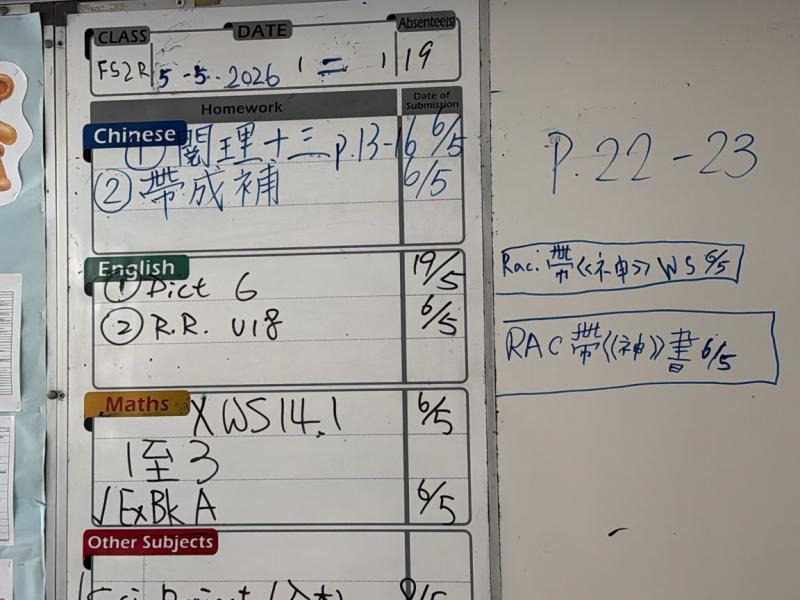 CLASS DATE Absentee(s)
FS2R 5-5-2026 (二) 19
Homework Date of Submission
Chinese
① 閱理十三 p.13-16 6/5
② 帶成補 6/5
English
① Dict 6 19/5
② R.R. U18 6/5
Maths
X WS14.1 6/5
1至3
√ ExBk A 6/5
Other Subjects
P.22-23
Raci. 帶《神》WS 6/5
RAC 帶《神》書 6/5